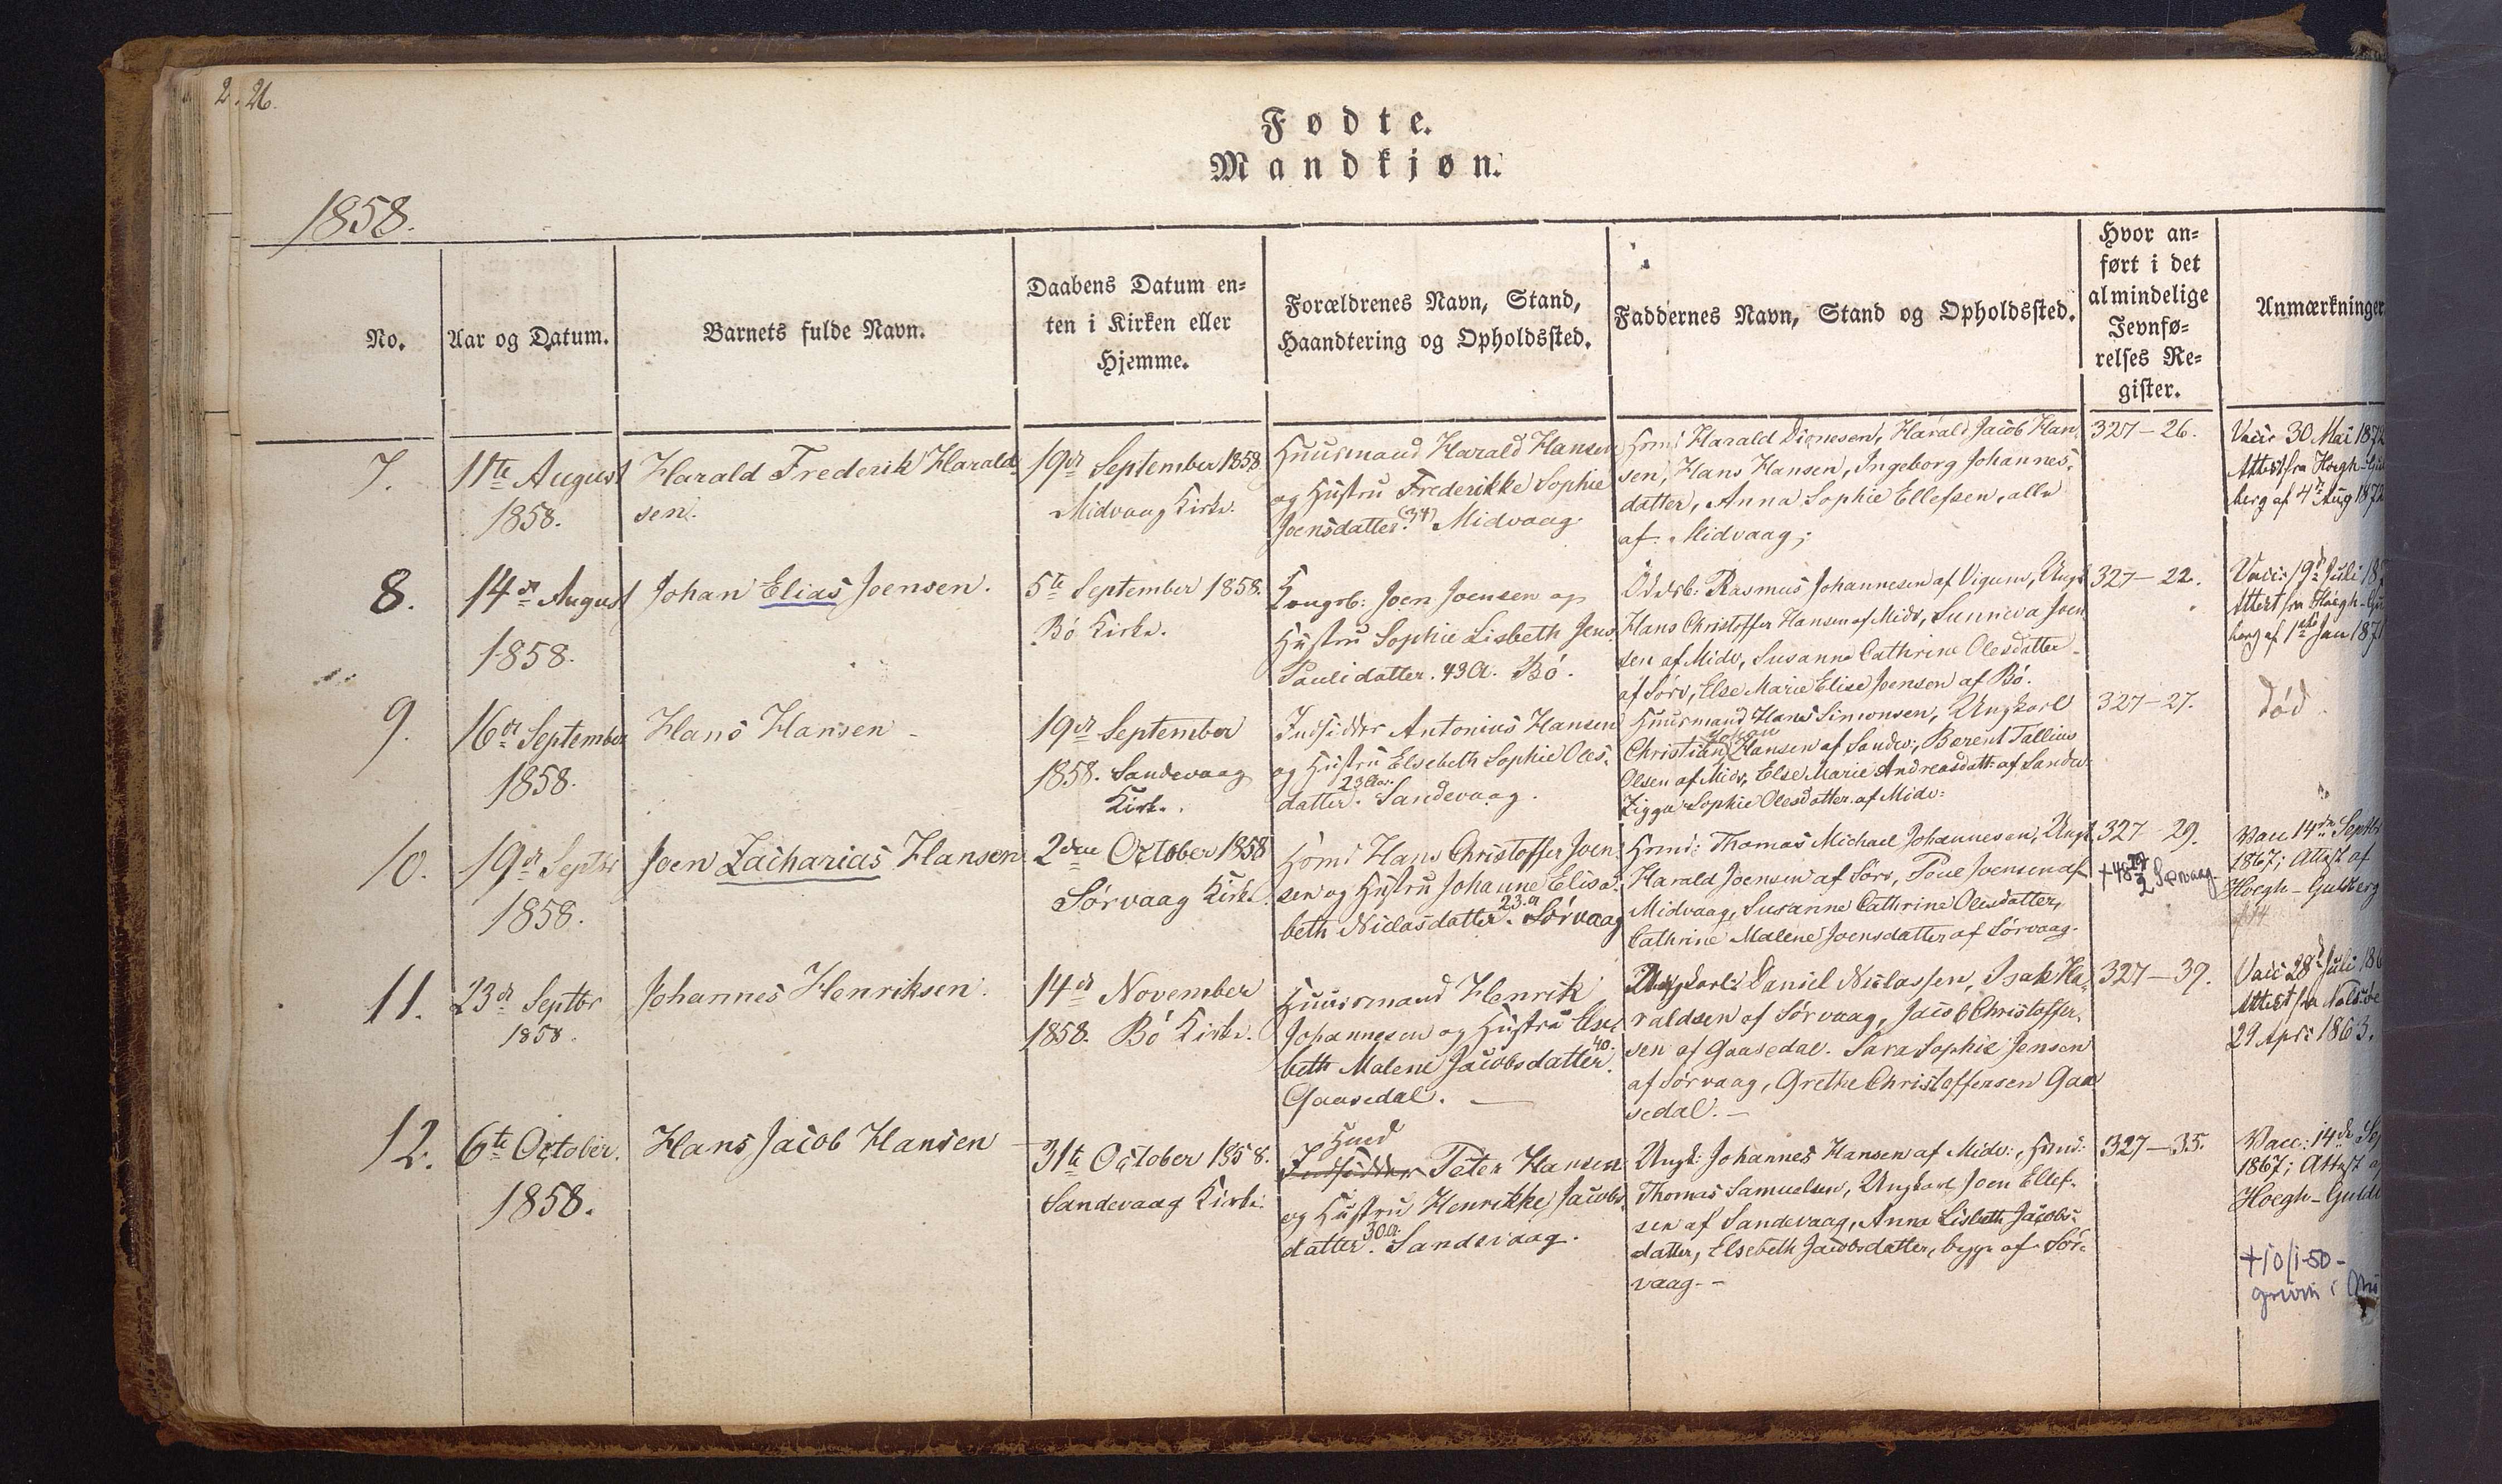 2. 26.
Fødte.
Mandkjøn.
1858.
No.
Aar og Datum.
Barnets fulde Navn.
Daabens Datum en=
ten i Kirken eller
Hjemme.
Forældrenes Navn, Stand,
Haandtering og Opholdssted.
Faddernes Navn, Stand og Opholdssted.
Hvor an=
ført i det
almindelige
Jevnfø=
relses Re=
gister.
Anmærkninger
7.
11te August
1858.
Harald Frederik Harald-
sen.
19de September 1858
Midvaag Kirke.
Huusmand Harald Hansen
og Hustru Frederikke Sophie
Joensdatter. (34) Midvaag
Hmd: Harald Dionesen, Harald Jacob Han-
sen, Hans Hansen, Ingeborg Johannes-
datter, Anna Sophie Ellefsen, alle
af Midvaag;
327-26.
Vacc 30 Mai 1872
Attest fra Hoegh-Gul
berg af 4de Aug 1872
8.
14de August
1858.
Johan Elias Joensen.
5te September 1858.
Bö Kirke.
Kongsb: Joen Joensen og
Hustru Sophie Lisbeth Jens
Paulidatter. 43 a. Bö.
Odelsb: Rasmus Johannesen af Vigum, Ungk
Hans Christoffer Hansen af Midv, Sunneva Joen
sen af Midv, Susanne Cathrine Olesdatter
af Sörv, Else Marie Elise Joensen af Bö.
327-22.
Vacc: 19de Juli 18
Attest fra Hoegh-Gu
berg af 1ste Jan 1871
9.
16de September
1858.
Hans Hansen
19de September
1858. Sandevaag
Kirke.
Indsidder Antonius Hansen
og Hustru Elsebeth Sophie Oles-
datter. 23 Aar. Sandevaag.
Huusmand Hans Simonsen, Ungkarl
Christian Johan Hansen af Sandev:, Berent Tallius
Olsen af Midv, Else Marie Andreasdatt: af Sandev
Zigga Sophie Olesdatter af Midv:
327-27.
död
10.
19de Septbr
1858.
Joen Zacharias Hansen
2den October 1858
Sörvaag Kirke.
Hsmd Hans Christoffer Joen-
sen og Hustru Johanne Elisa-
beth Niclasdatter. 23 a Sörvaag
Hsmd: Thomas Michael Johannesen, Ungk.
Harald Joensen af Sörv, Poul Joensen af
Midvaag, Susanne Cathrine Olesdatter,
Cathrine Malene Joensdatter af Sörvaag.
327 29.
Vacc 14de Septbr
1867; Attest af
Hoegh-Guldberg
11.
23de Septbr
1858.
Johannes Henriksen.
14de November
1858. Bö Kirke.
Huusmand Henrik
Johannesen og Hustru Else-
beth Malene Jacobsdatter. 40.
Gaasedal.
Ungkarl: Daniel Niclassen, Isak Ha-
raldsen af Sörvaag, Jacob Christoffer-
sen af Gaasedal. Sara Sophie Jensen
af Sörvaag, Grethe Christoffersen Gaa
sedal.
327-39.
Vacc 28de Juli 186
Attest fra Nolsöe
29 April 1863.
12.
6te October.
1858.
Hans Jacob Hansen
31te October 1858.
Sandevaag Kirke.
Hmd
Indsidder Peter Hansen
og Hustru Henrikke Jacobs-
datter. 30 a. Sandevaag.
Ungk: Johannes Hansen af Midv:, Hmd:
Thomas Samuelsen, Ungkarl Joen Ellef-
sen af Sandevaag, Anna Lisbeth Jacobs-
datter, Elsebeth Jacobsdatter, begge af Sör-
vaag.
327-35.
Vacc: 14de Sep
1867; Attest af
Hoegh-Guldb
+10/1-50-